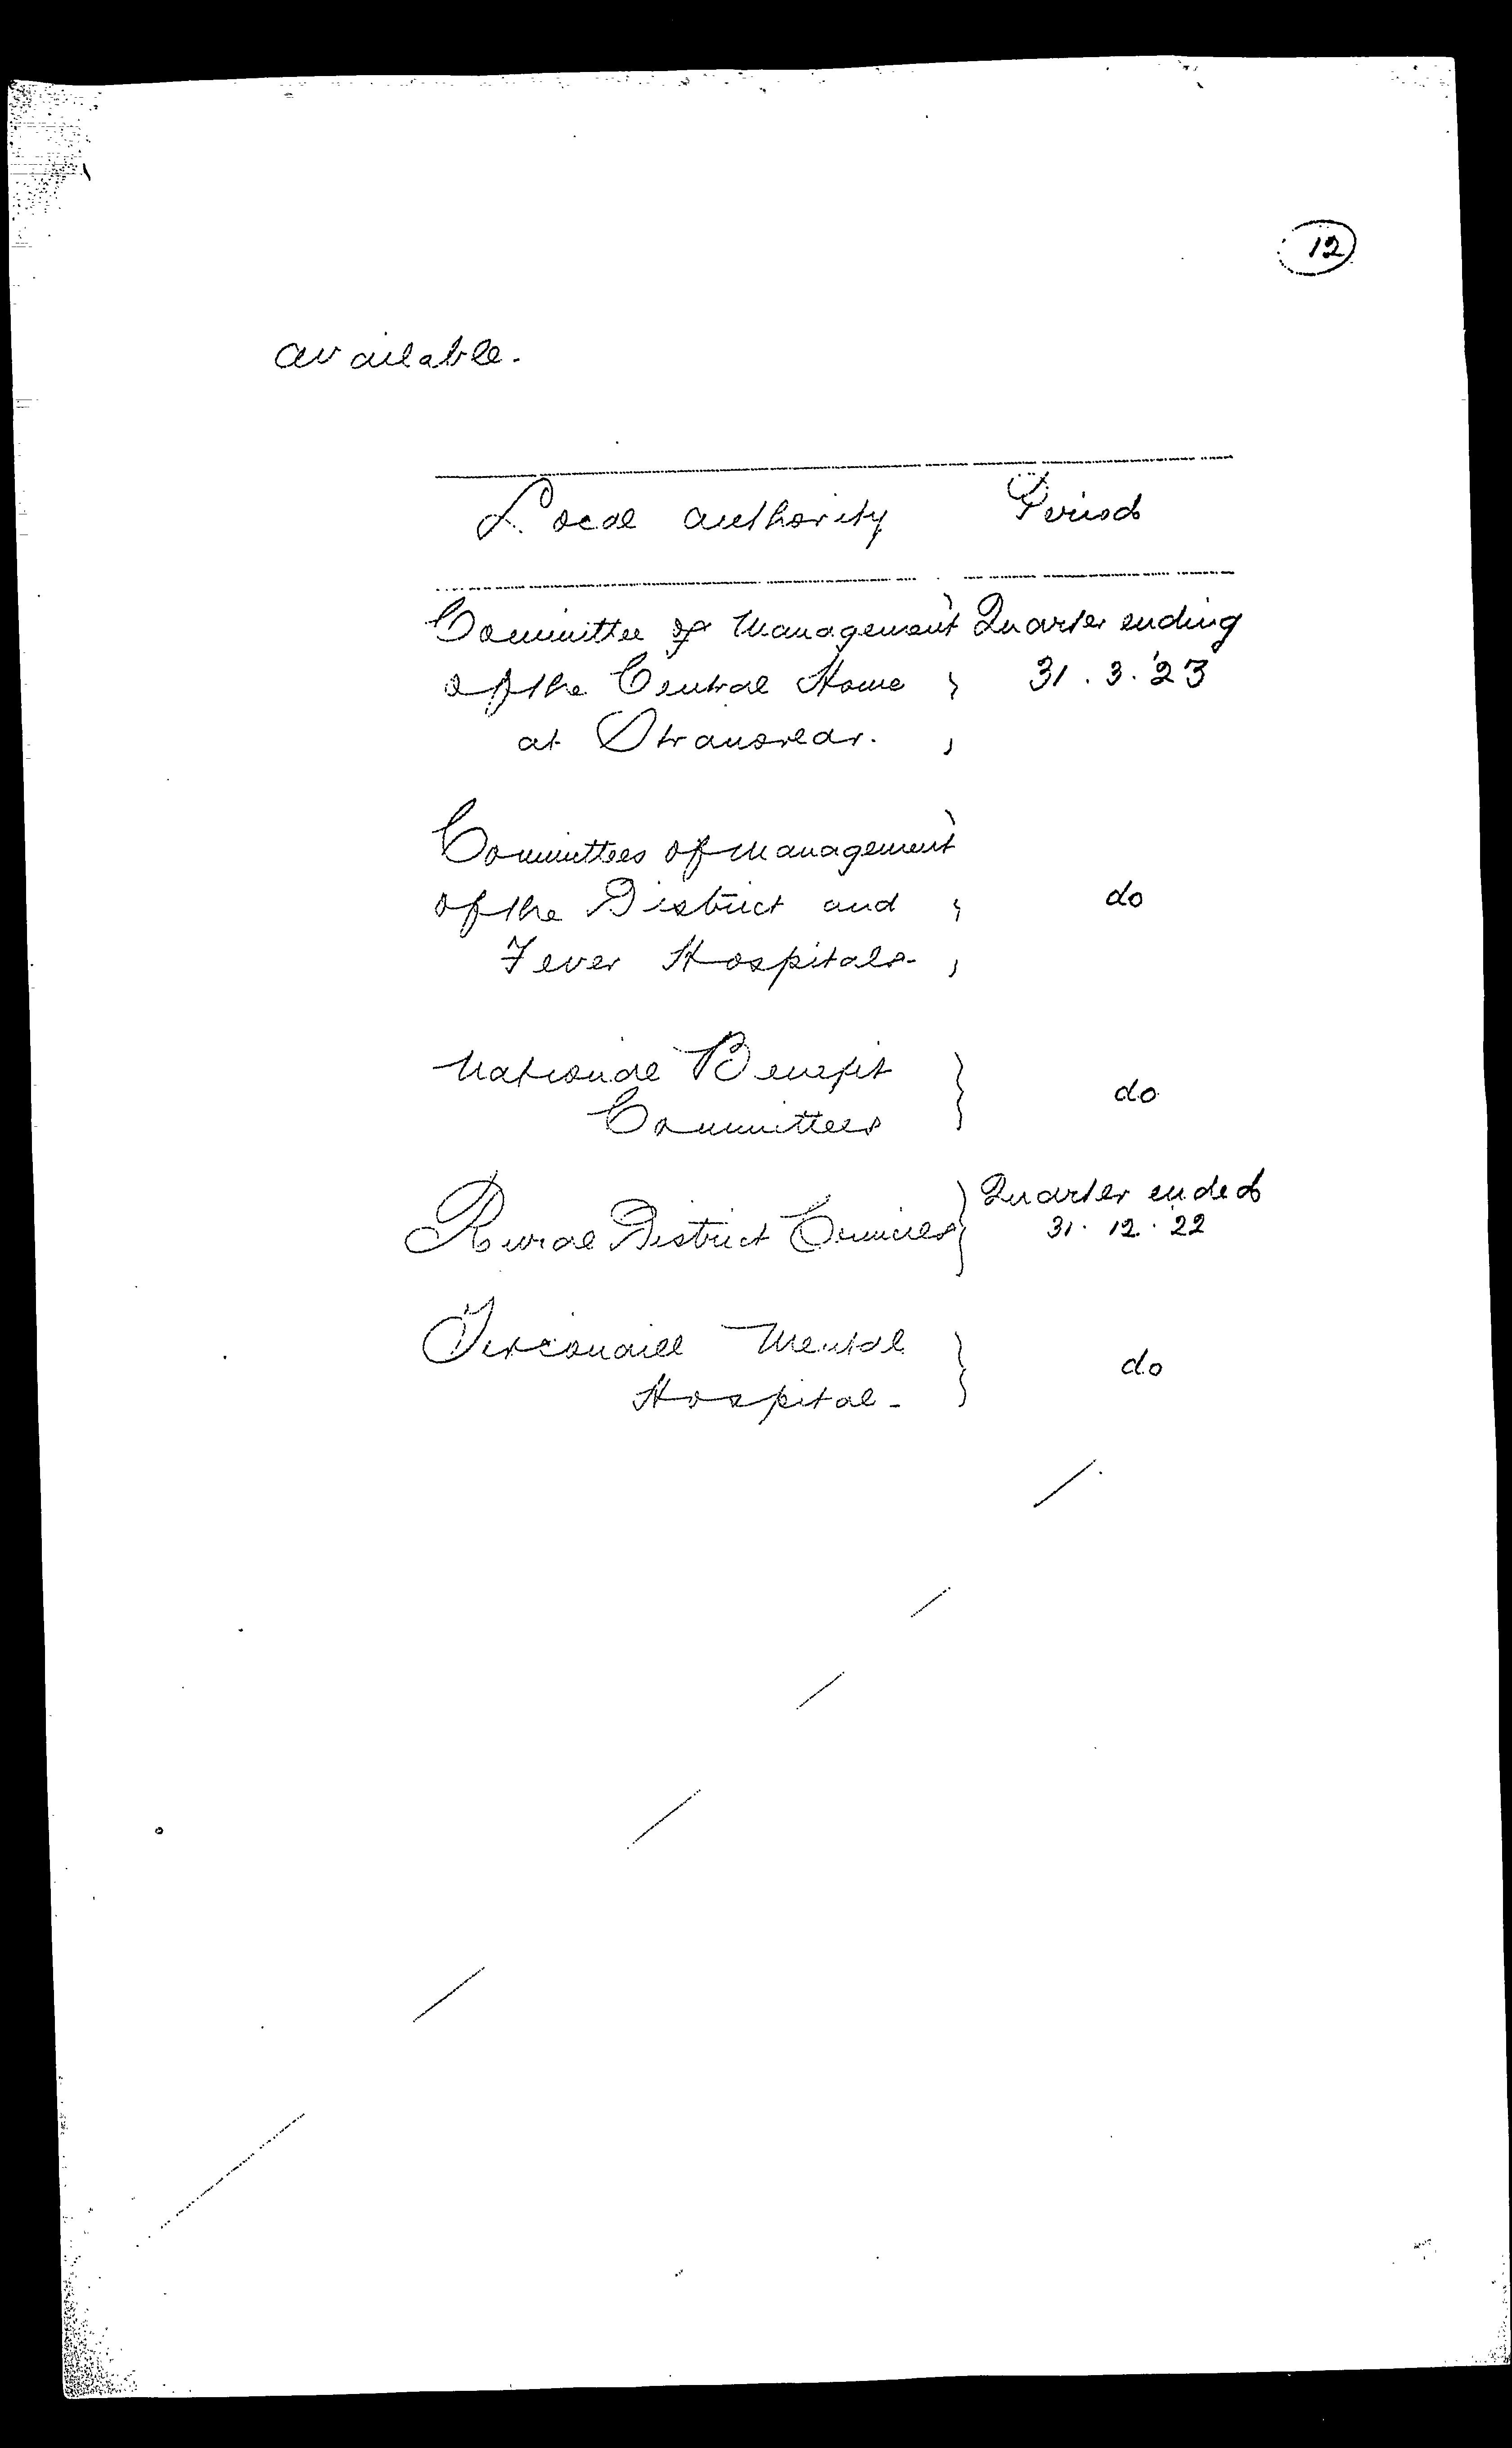 12
available.
Local authority Period
Committee of Management Quarter ending
of the Central Home 31.3.'23
at Stranorlar.
Committees of Management
of the District and do
Fever Hospitals.
National Benefit
Committees do
Rural District Councils Quarter ended
31.12.22
Tirconaill Mental
Hospital. do